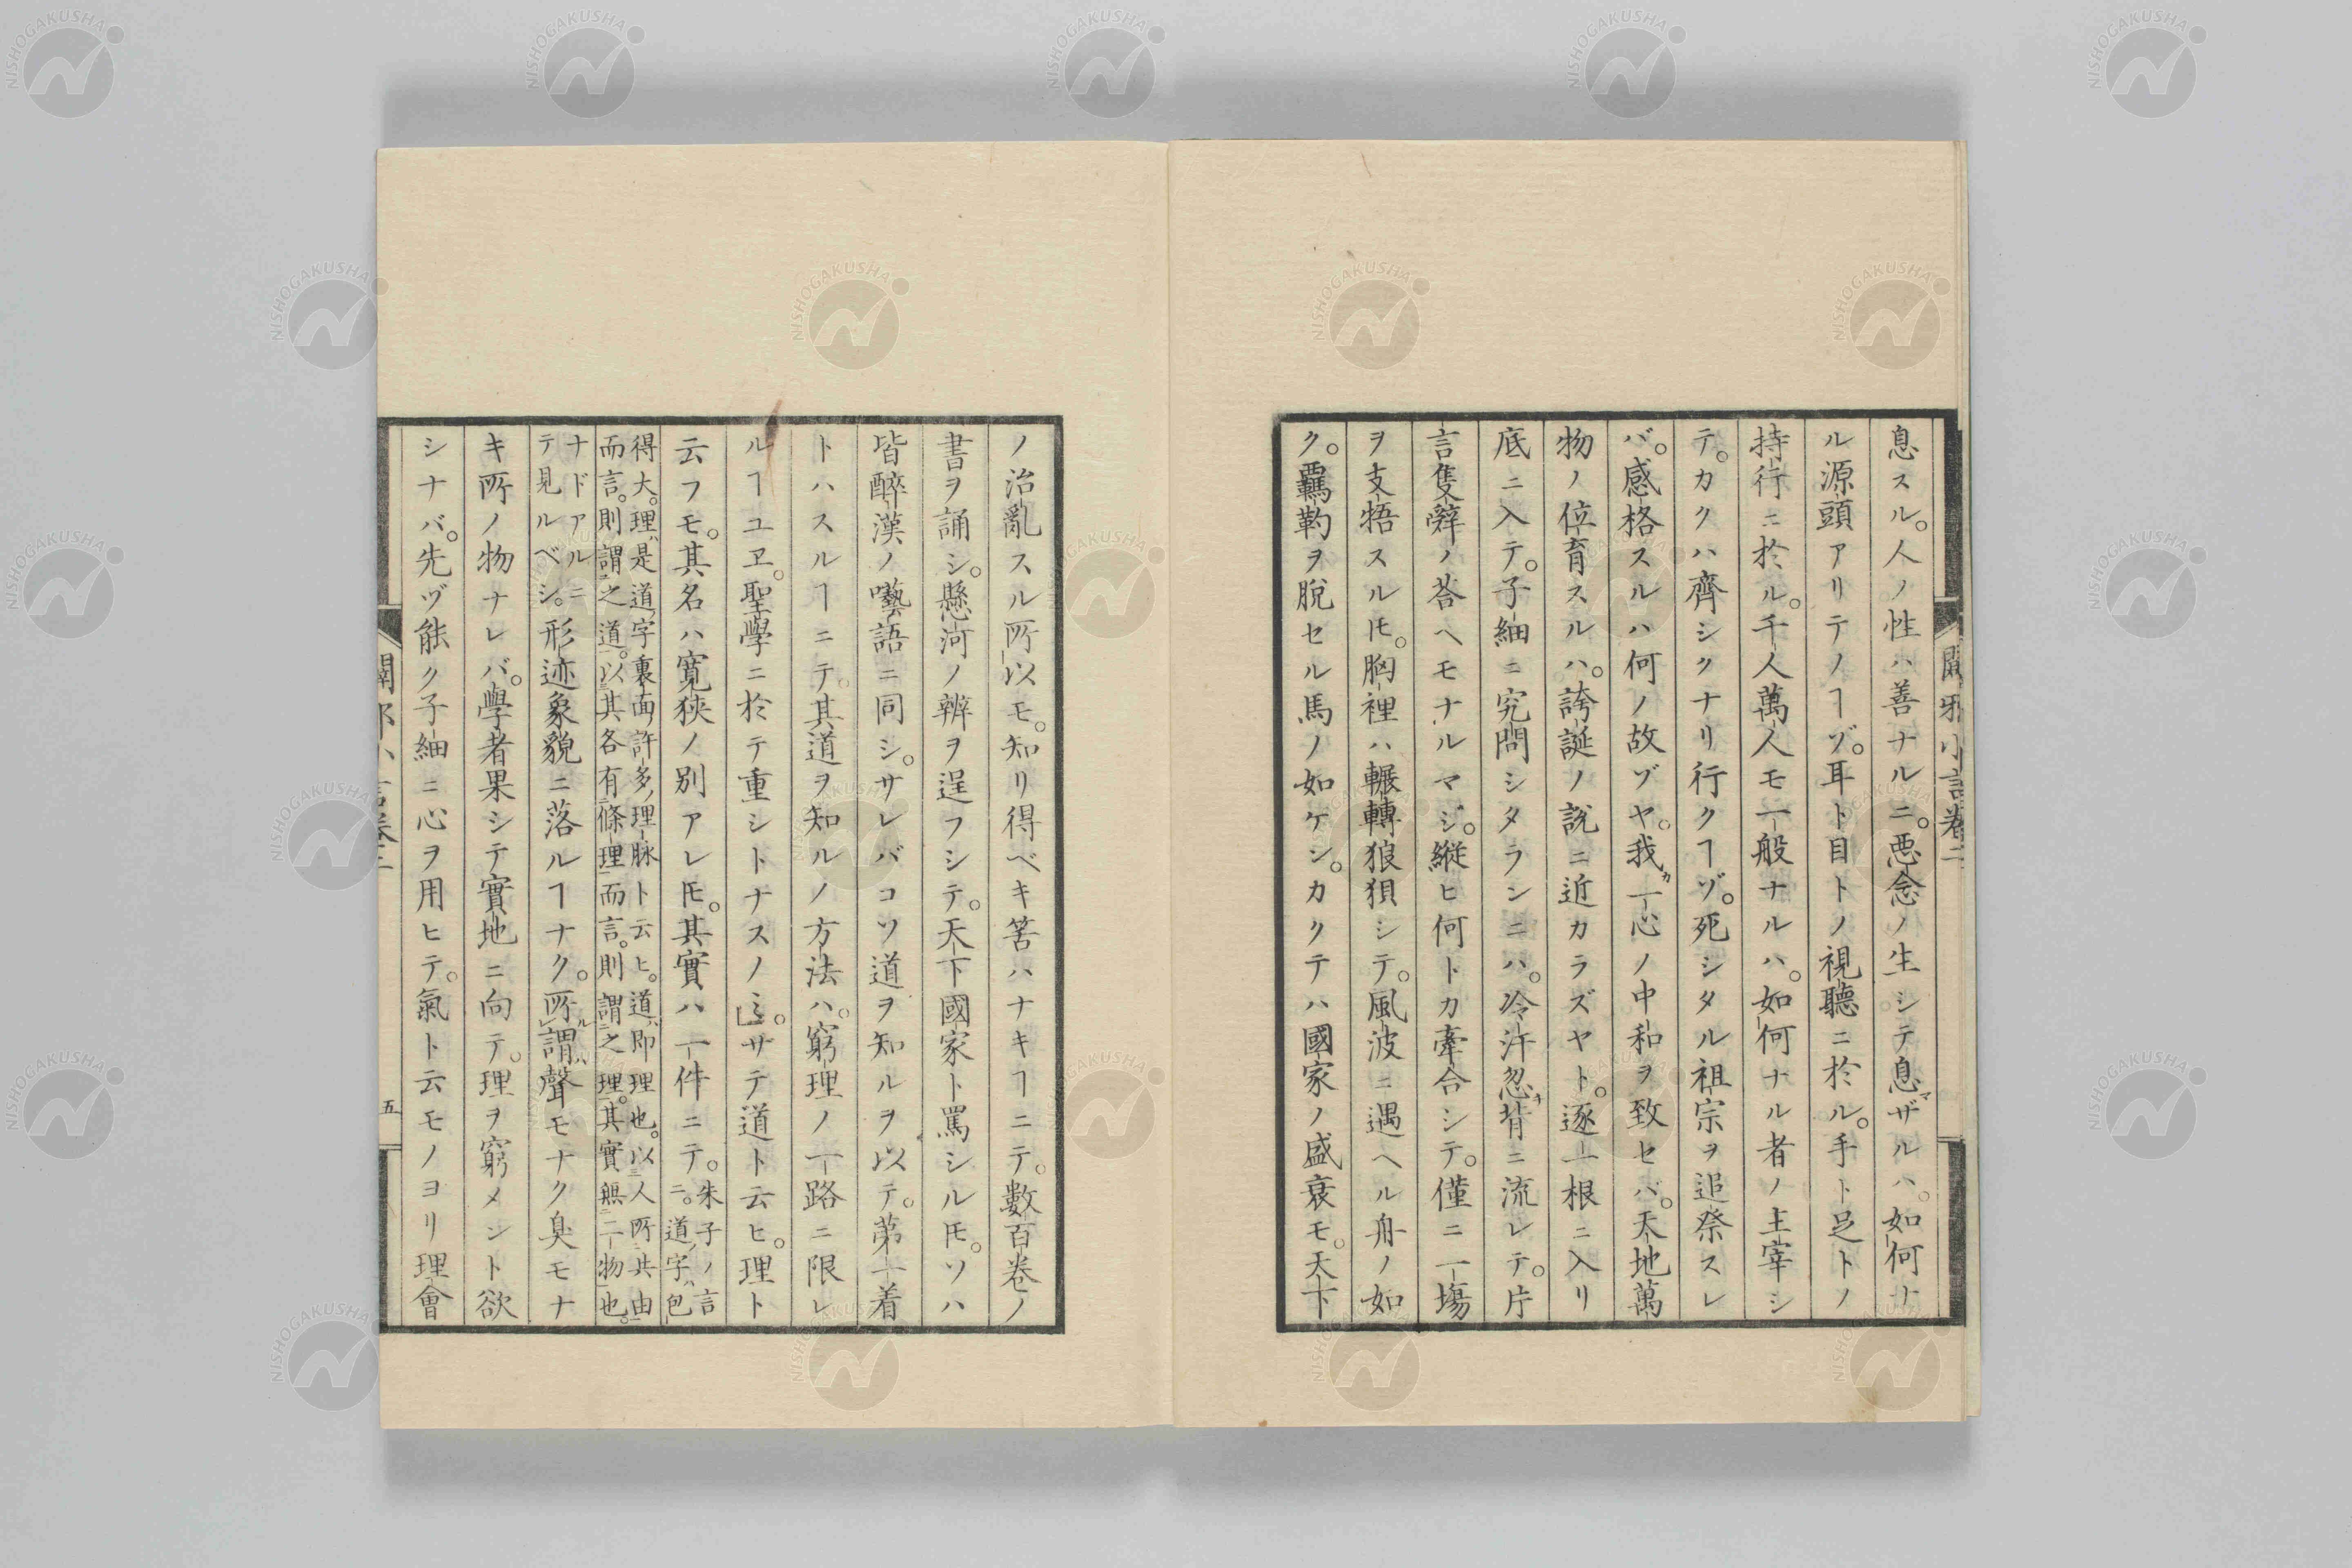 息スル。人ノ性ハ善ナルニ。悪念ノ生シテ息マザルハ。如何ナ
ル源頭アリテノヿゾ。耳ト目トノ視聽ニ於ル。手ト足トノ
持行ニ於ル。千人萬人モ一般ナルハ。如何ナル者ノ主宰シ
テ。カクハ齊シクナリ行クヿゾ。死シタル祖宗ヲ追祭スレ
バ。感格スルハ何ノ故ゾヤ。我カ一心ノ中和ヲ致セバ。天地萬
物ノ位育スルハ。誇誕ノ説ニ近カラズヤト。逐一根ニ入リ
底ニ入テ。子細ニ究問シタランニハ。冷汗忽チ背ニ流レテ。片
言隻辭ノ荅ヘモナルマジ。縦ヒ何トカ牽合シテ。僅ニ一塲
ヲ支牾スルㇳモ。胸裡ハ輾轉狼狽シテ。風波ニ遇ヘル舟ノ如
ク。羈靮ヲ脱セル馬ノ如ケン。カクテハ國家ノ盛衰モ。天下
闢邪小言卷二
ノ治亂スル所以モ。知リ得ベキ筈ハナキヿニテ。數百卷ノ
書ヲ誦シ。懸河ノ辨ヲ逞フシテ。天下國家ト罵シルㇳモ。ソハ
皆醉漢ノ囈語ニ同シ。サレバコソ道ヲ知ルヲ以テ。第一着
トハスルヿニテ。其道ヲ知ルノ方法ハ。窮理ノ一路ニ限レ
ルヿユヱ。聖學ニ於テ重シトナスノミ。」サテ道ト云ヒ。理ト
云フモ。其名ハ寛狹ノ別アレㇳモ。其實ハ一件ニテ。朱子ノ言ニ。道ノ字ハ包
得大。理ハ是道ノ字裏面許多ノ理脉ト云ヒ。道ハ即理也。以人所共由
而言。則謂之道。以其各有條理而言。則謂之理。其實無二物也。
ナドアルニテ見ルベシ。形迹象貌ニ落ルヿナク。所謂ル聲モナク臭モナ
キ所ノ物ナレバ。學者果シテ實地ニ向テ。理ヲ窮メント欲
シナバ。先ヅ能ク子細ニ心ヲ用ヒテ。氣ト云モノヨリ理會
闢邪小言卷二
五